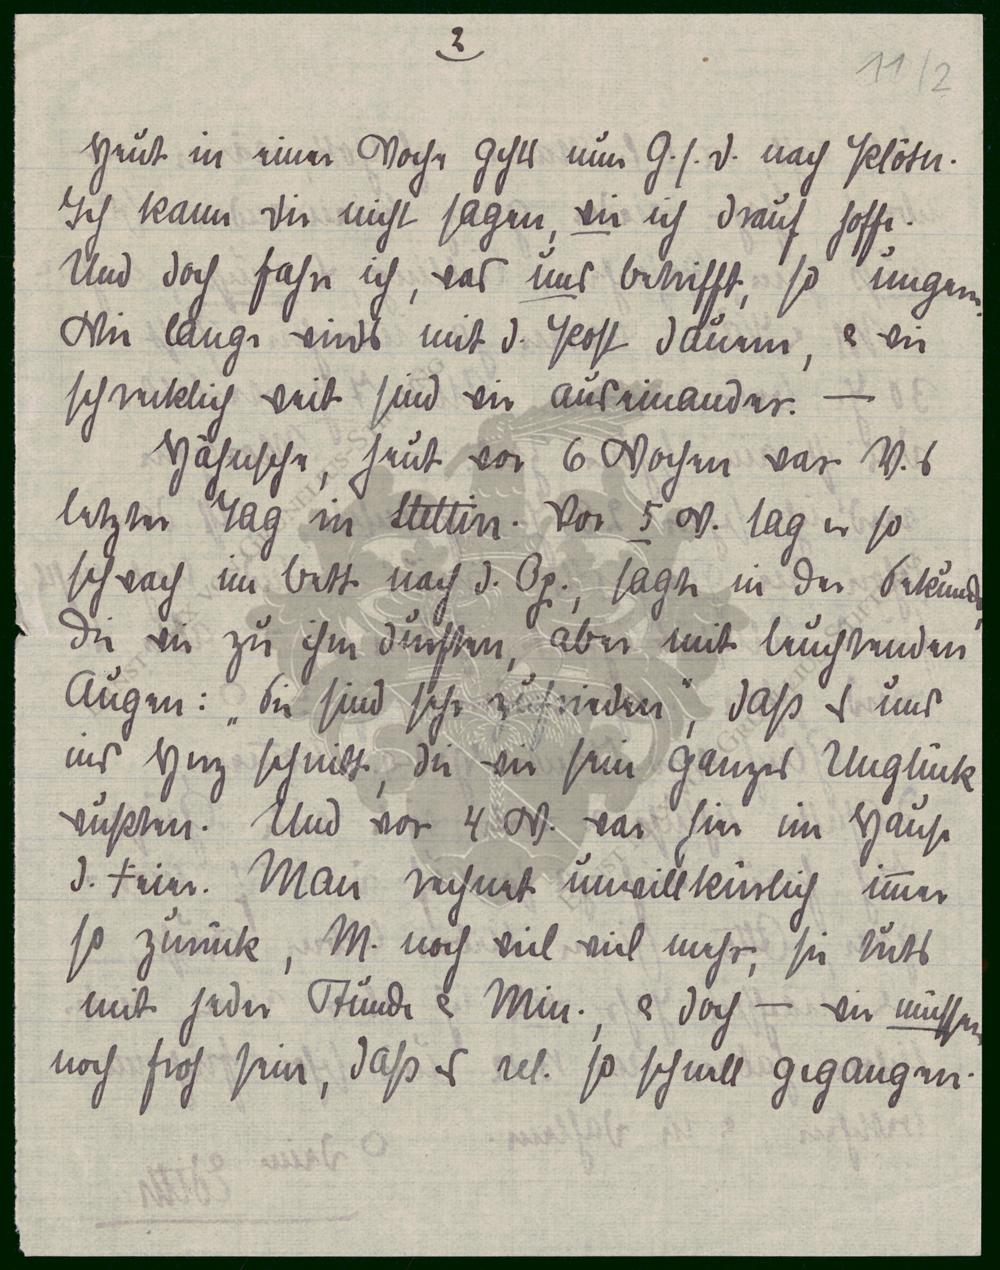 2
11/2
Heut in einer Woche gehts nun G. s. d. nach
Ich kann Dir nicht sagen, wie ich drauf hoffe.
Und doch fahre ich, was uns betrifft, so ungern.
Wie lange wirds mit d. Post dauern, & wie
schrecklich weit sind wir auseinander. —
Hähnsche, heut vor 6 Wochen war V.s
letzter Tag in Stettin. Vor 5 W. lag er so
schwach im Bett nach d. Op., sagte in der Sekunde,
die wir zu ihm durften, aber mit leuchtenden
Augen: „Sie sind sehr zufrieden", daß es uns
ins Herz schnitt, die wir sein ganzes Unglück
wußten. Und vor 4 W. war hier im Hause
d. Feier. Man rechnet unwillkürlich im̅er
so zurück, M. noch viel viel mehr, sie tuts
mit jeder Stunde & Min., & doch — wir müssen
noch froh sein, daß es rel. so schnell gegangen.